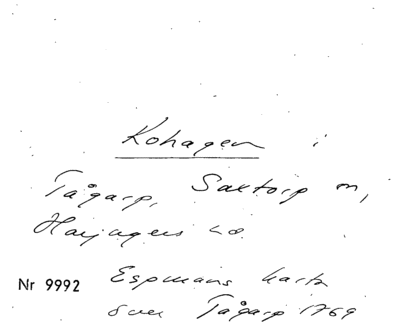 Kohagen i
Tågarp, Saxtorp sn,
Harjagers hd.
Nr 9992 Espmans karta
över Tågarp 1769